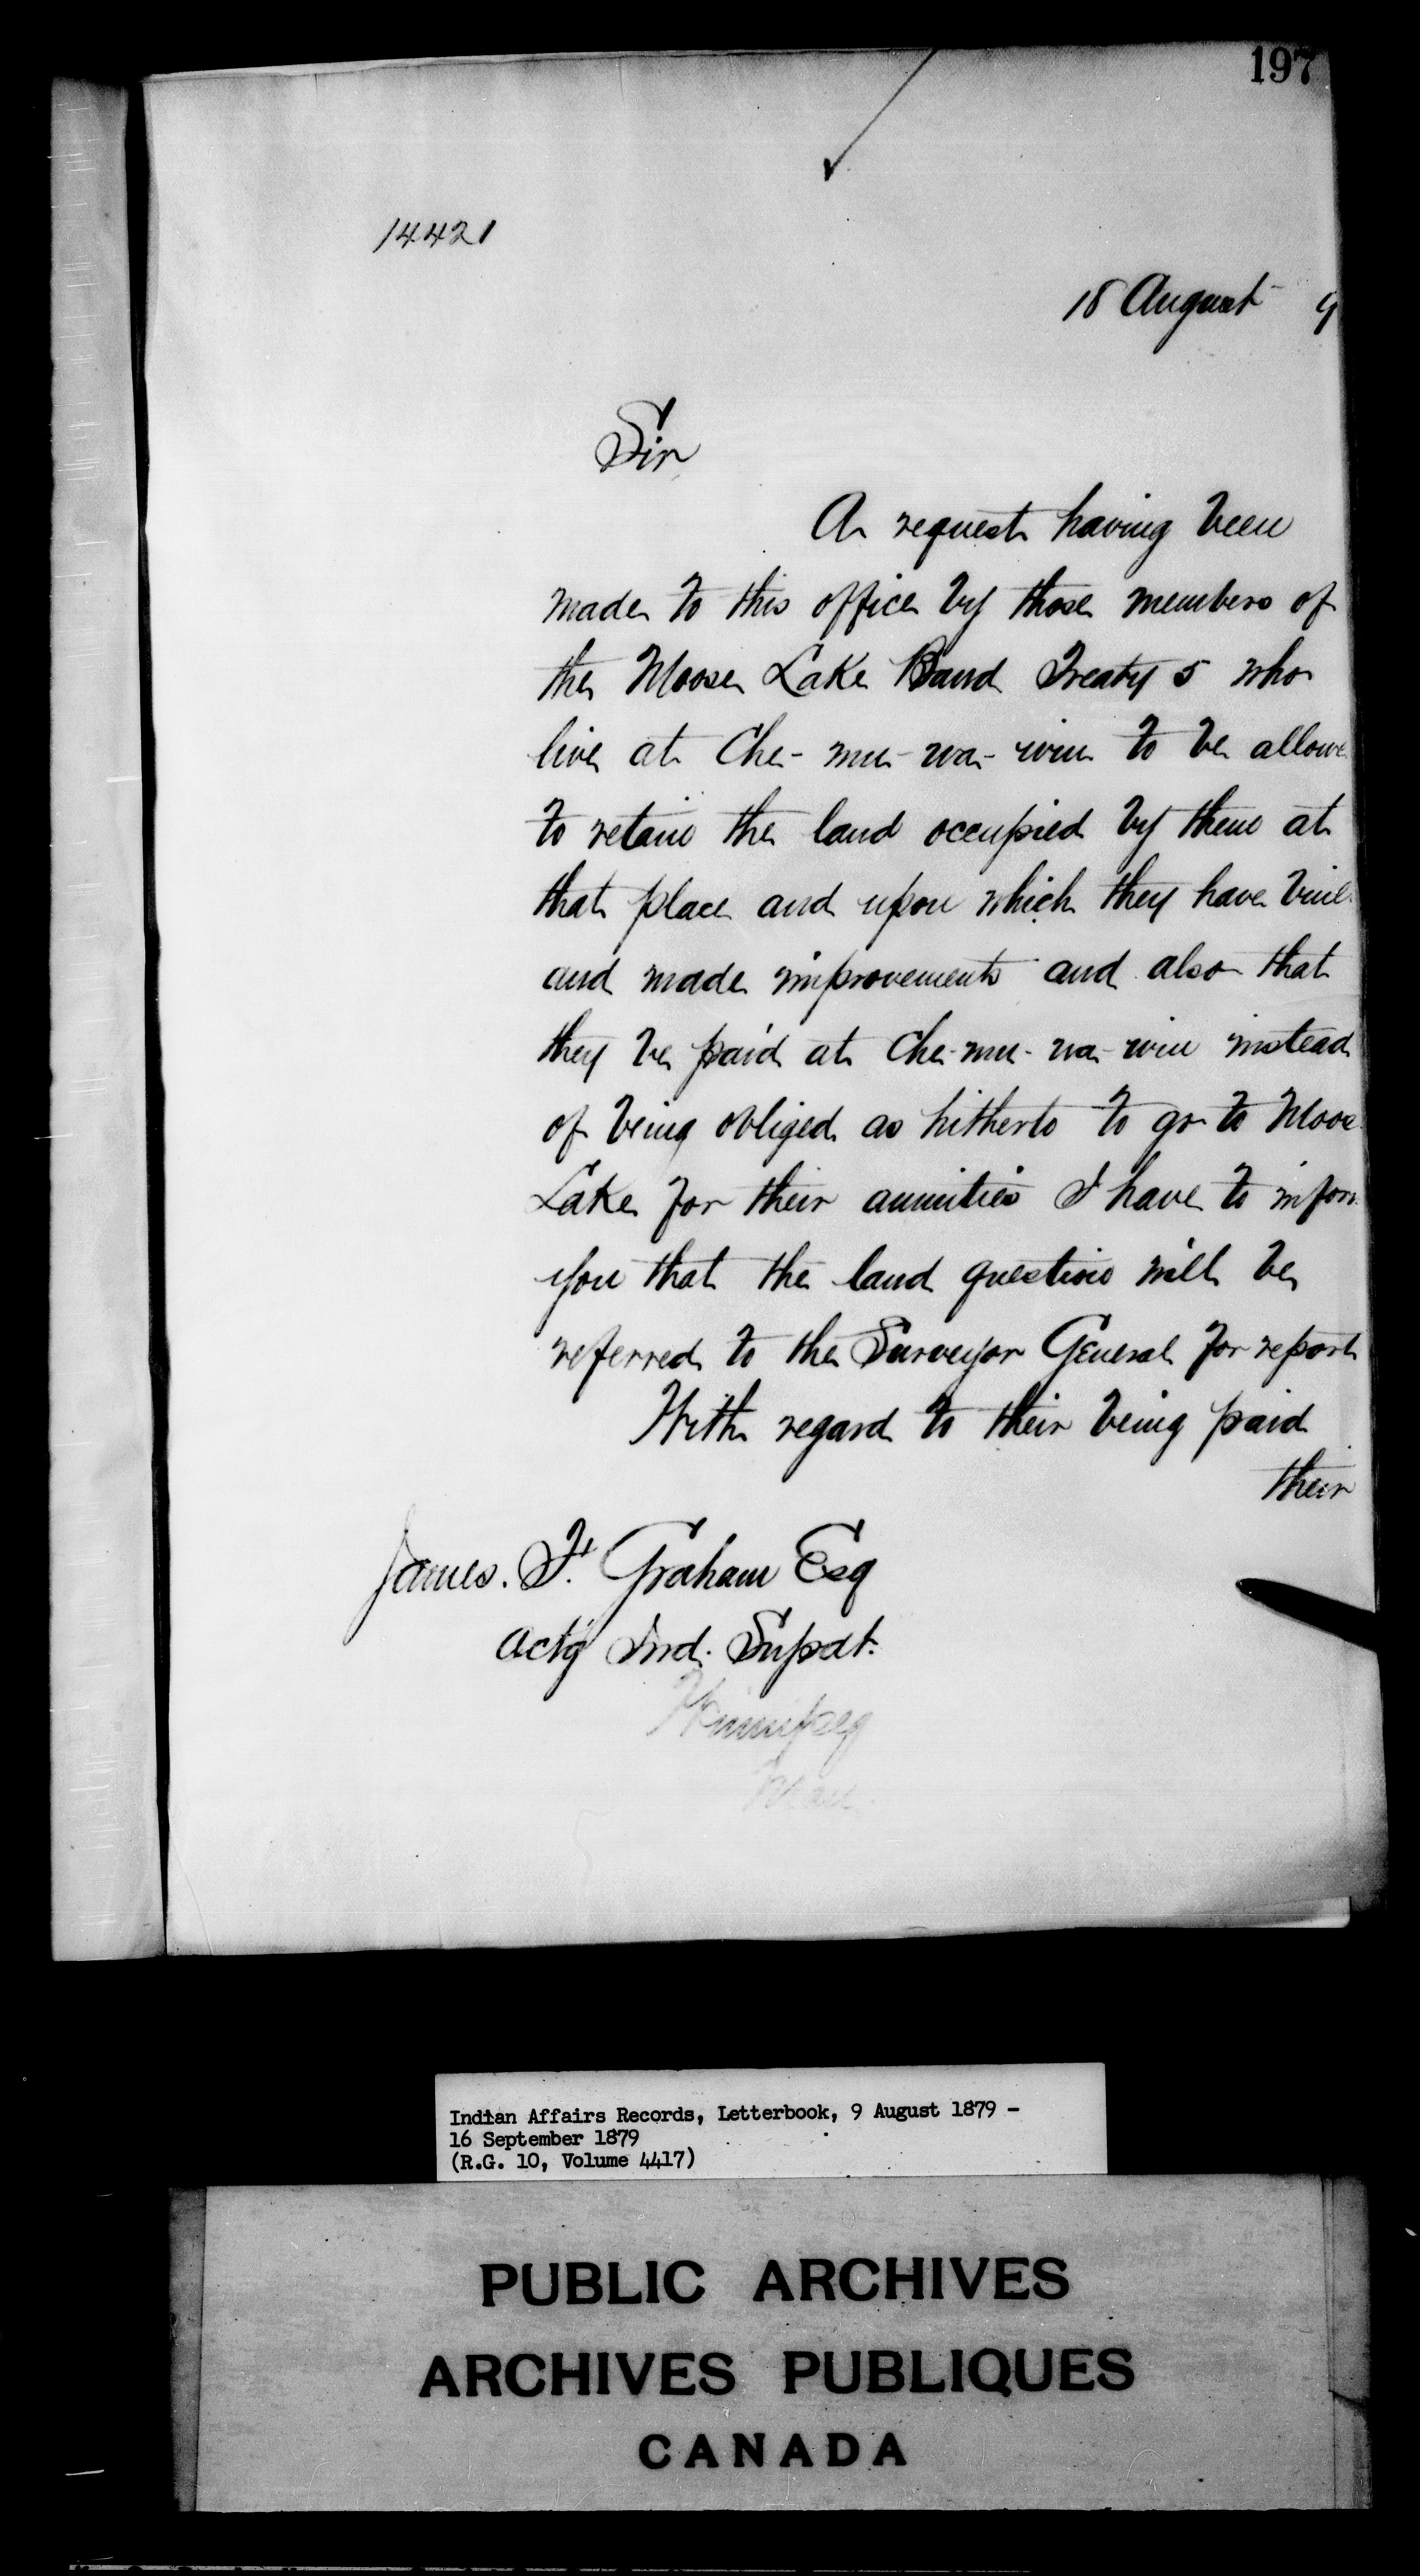 197
14421
18 August 9
Sir
A request having been
made to this office by those members of
the Moose Lake Band Treaty 5 who
live at Che-mu-wa-win to be allowe
to retain the land occupied by them at
that place and upon which they have buil
and made improvements and also that
they be paid at Che-mu-wa-win instead
of being obliged as hitherto to go to Moose
Lake for their annuities I have to inform
you that the land question will be
referred to the Surveyor General for report
With regard to their being paid
their
James. F. Graham Esq
Actg Ind. Supdt.
Winnipeg
Man.
Indian Affairs Records, Letterbook, 9 August 1879 -
16 September 1879
(R.G. 10, Volume 4417)
PUBLIC ARCHIVES
ARCHIVES PUBLIQUES
CANADA